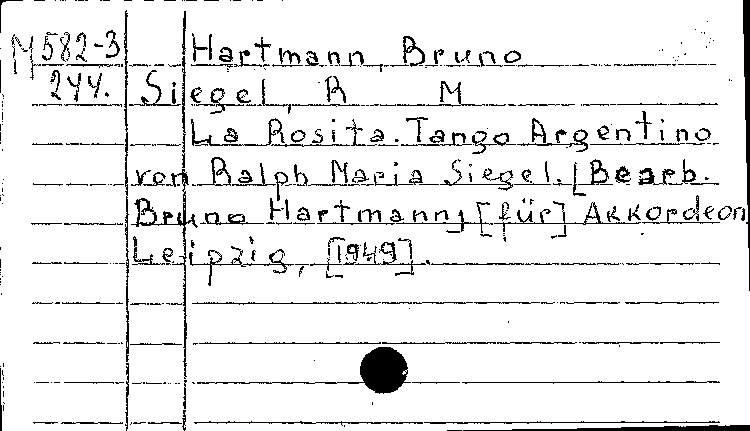 M 582-3 Hartmann, Bruno
244. Siegel, R M
La Rosita. Tango Argentino
von Ralph Maria Siegel. [Bearb.
Bruno Hartmann] [für] Akkordeon
Leipzig, [1949].